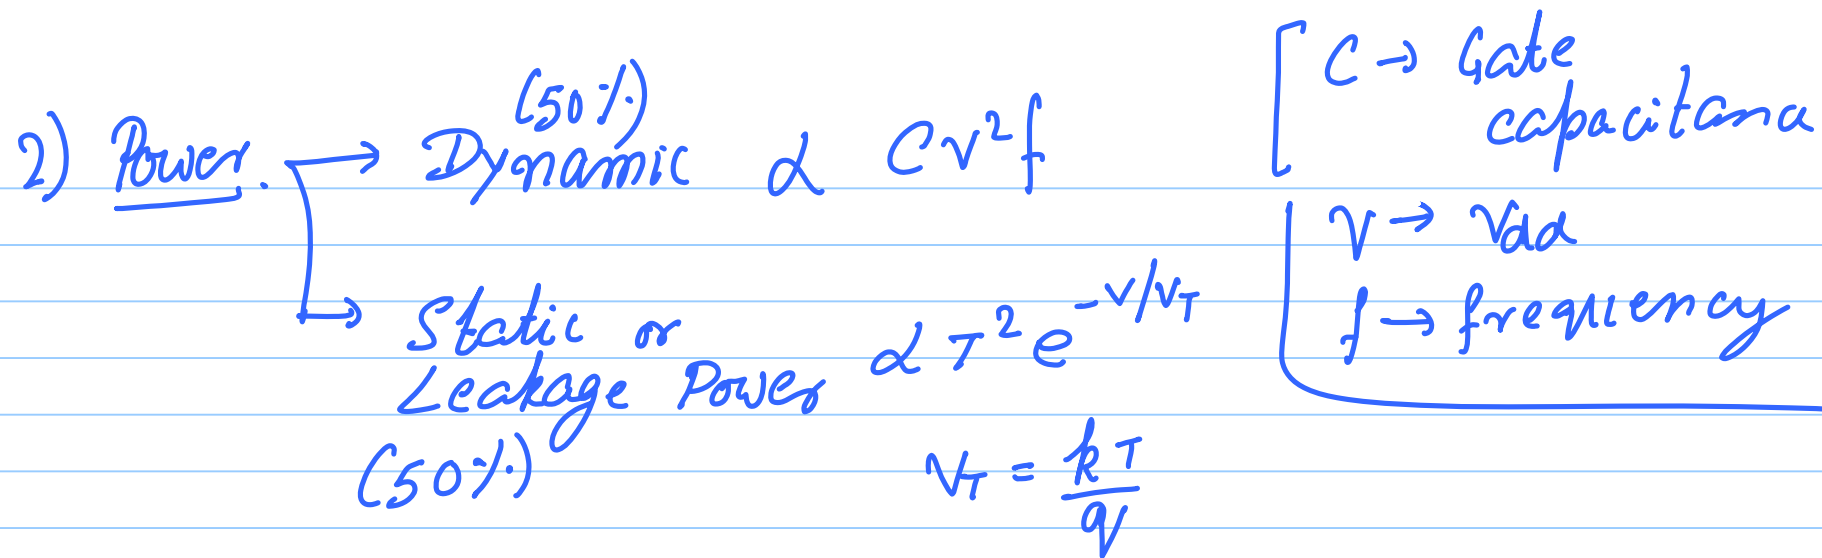 (50%)
2) Power. → Dynamic α CV²f
→ Static or Leakage Power α T²e^(-V/V_T)
(50%)
V_T = kT/q
C → Gate
capacitance
V → Vdd
f → frequency